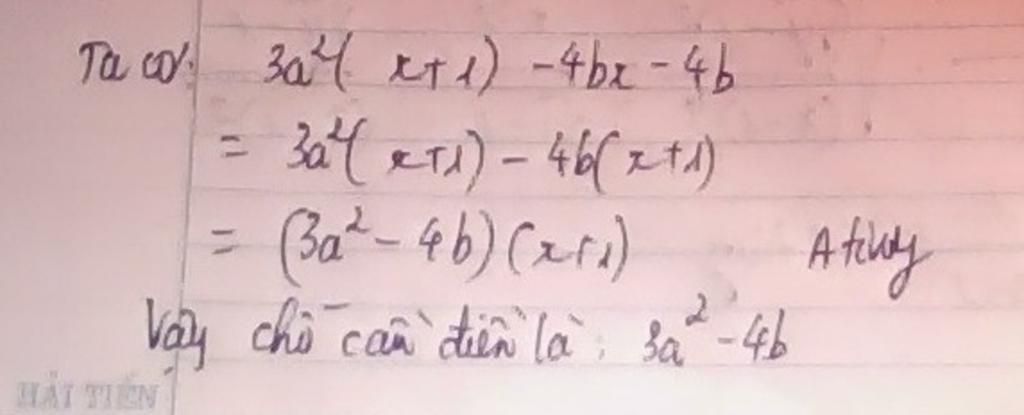 Ta có: 3a²( x+1) - 4bx - 4b
= 3a²( x+1) - 4b(x+1)
= (3a² - 4b)(x+1) Athuy
Vậy chỗ cần điền là: 3a² - 4b
HẢI TIẾN